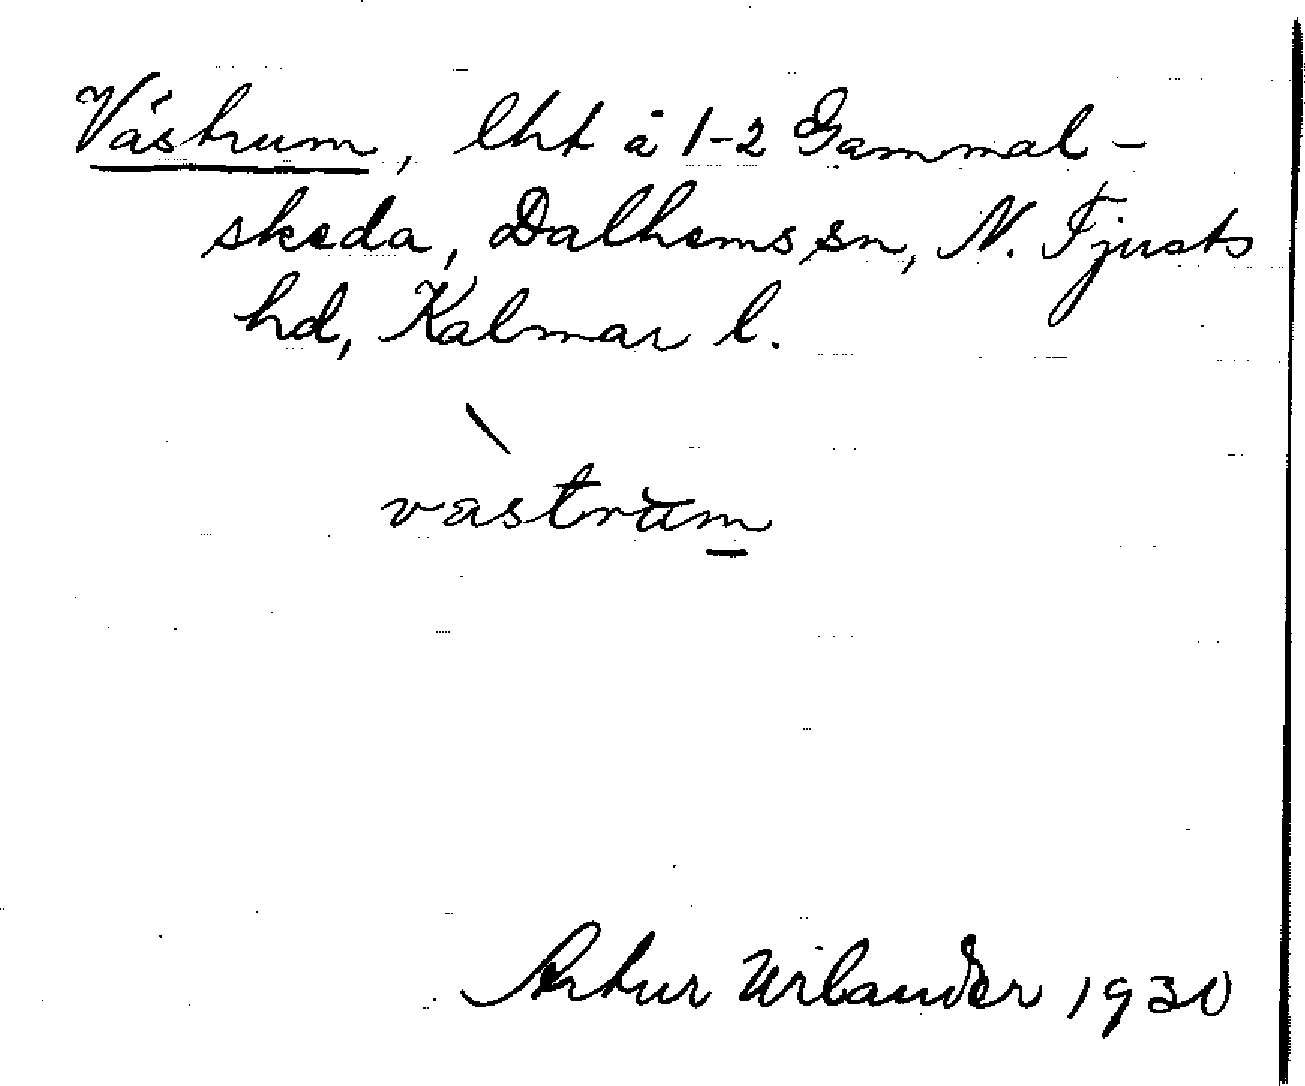 Västrum, lht å 1-2 Gammal-
skeda, Dalhems sn, N. Tjusts
hd, Kalmar l.
västrum
Artur Wilander 1930